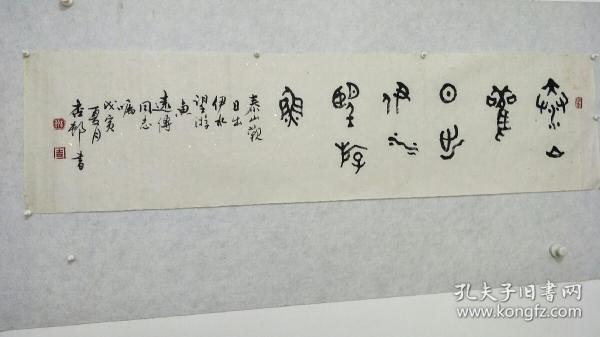 泰山
觀
日出
伊水
望游
魚
泰山觀
日出
伊水
望游
魚
遠
同志
嘱
戊寅
夏月
杏邨書
孔夫子旧书网
www.kongfz.com